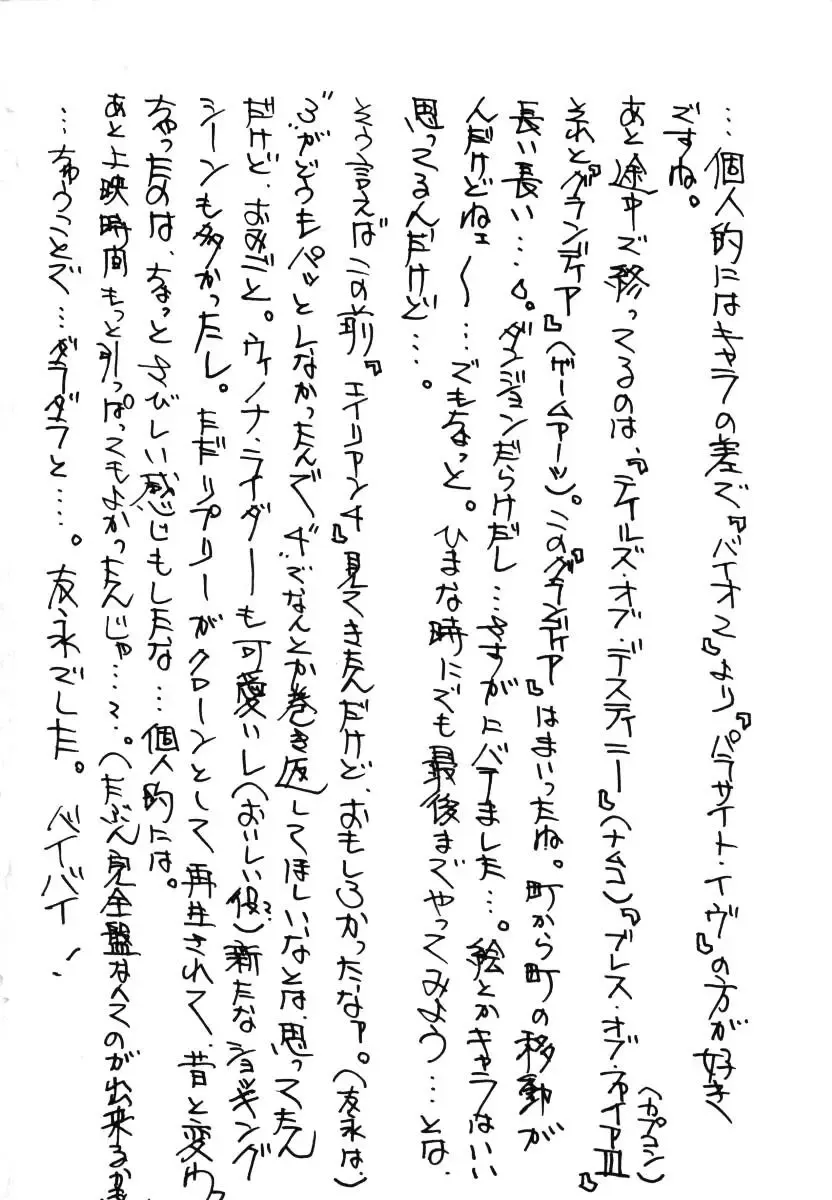 …個人的にはキャラの差で『バイオ2』より『パラサイト・イヴ』の方が好き
ですね。
あと途中で終ってるのは、『テイルズ・オブ・デスティニー』(ナムコ)『ブレス・オブ・ファイアⅢ』(カプコン)
それと『グランディア』(ゲームアーツ)。この『グランディア』はまいったね。町から町の移動が
長い長い…。ダンジョンだらけだし…さすがにバテました…。絵とかキャラないい
んだけどねェ〜…でもちょっと。ひまな時にでも最後までやってみよう…とは、
思ってるんだけど…。
そう言えばこの前『エイリアン4』見てきたんだけど、おもしろかったなァ。(友永は、)
“3”がどうもパッとしなかったんで、“4”でなんとか巻き返してほしいなとは、思ってたん
だけど、おみごと。ウィノナ・ライダーも可愛いし(おいしい役?)新たなショッキング
シーンも多かったし。ただリプリーがクローンとして再生されて、昔と変わっ
ちゃったのは、ちょっとさびしい感じもしたな…個人的には。
あと上映時間もっと引っぱってもよかったんじゃ…?。(たぶん完全盤なんてのが出来るか
…ちゅうことで…ダラダラと…。友永でした。バイバイ!